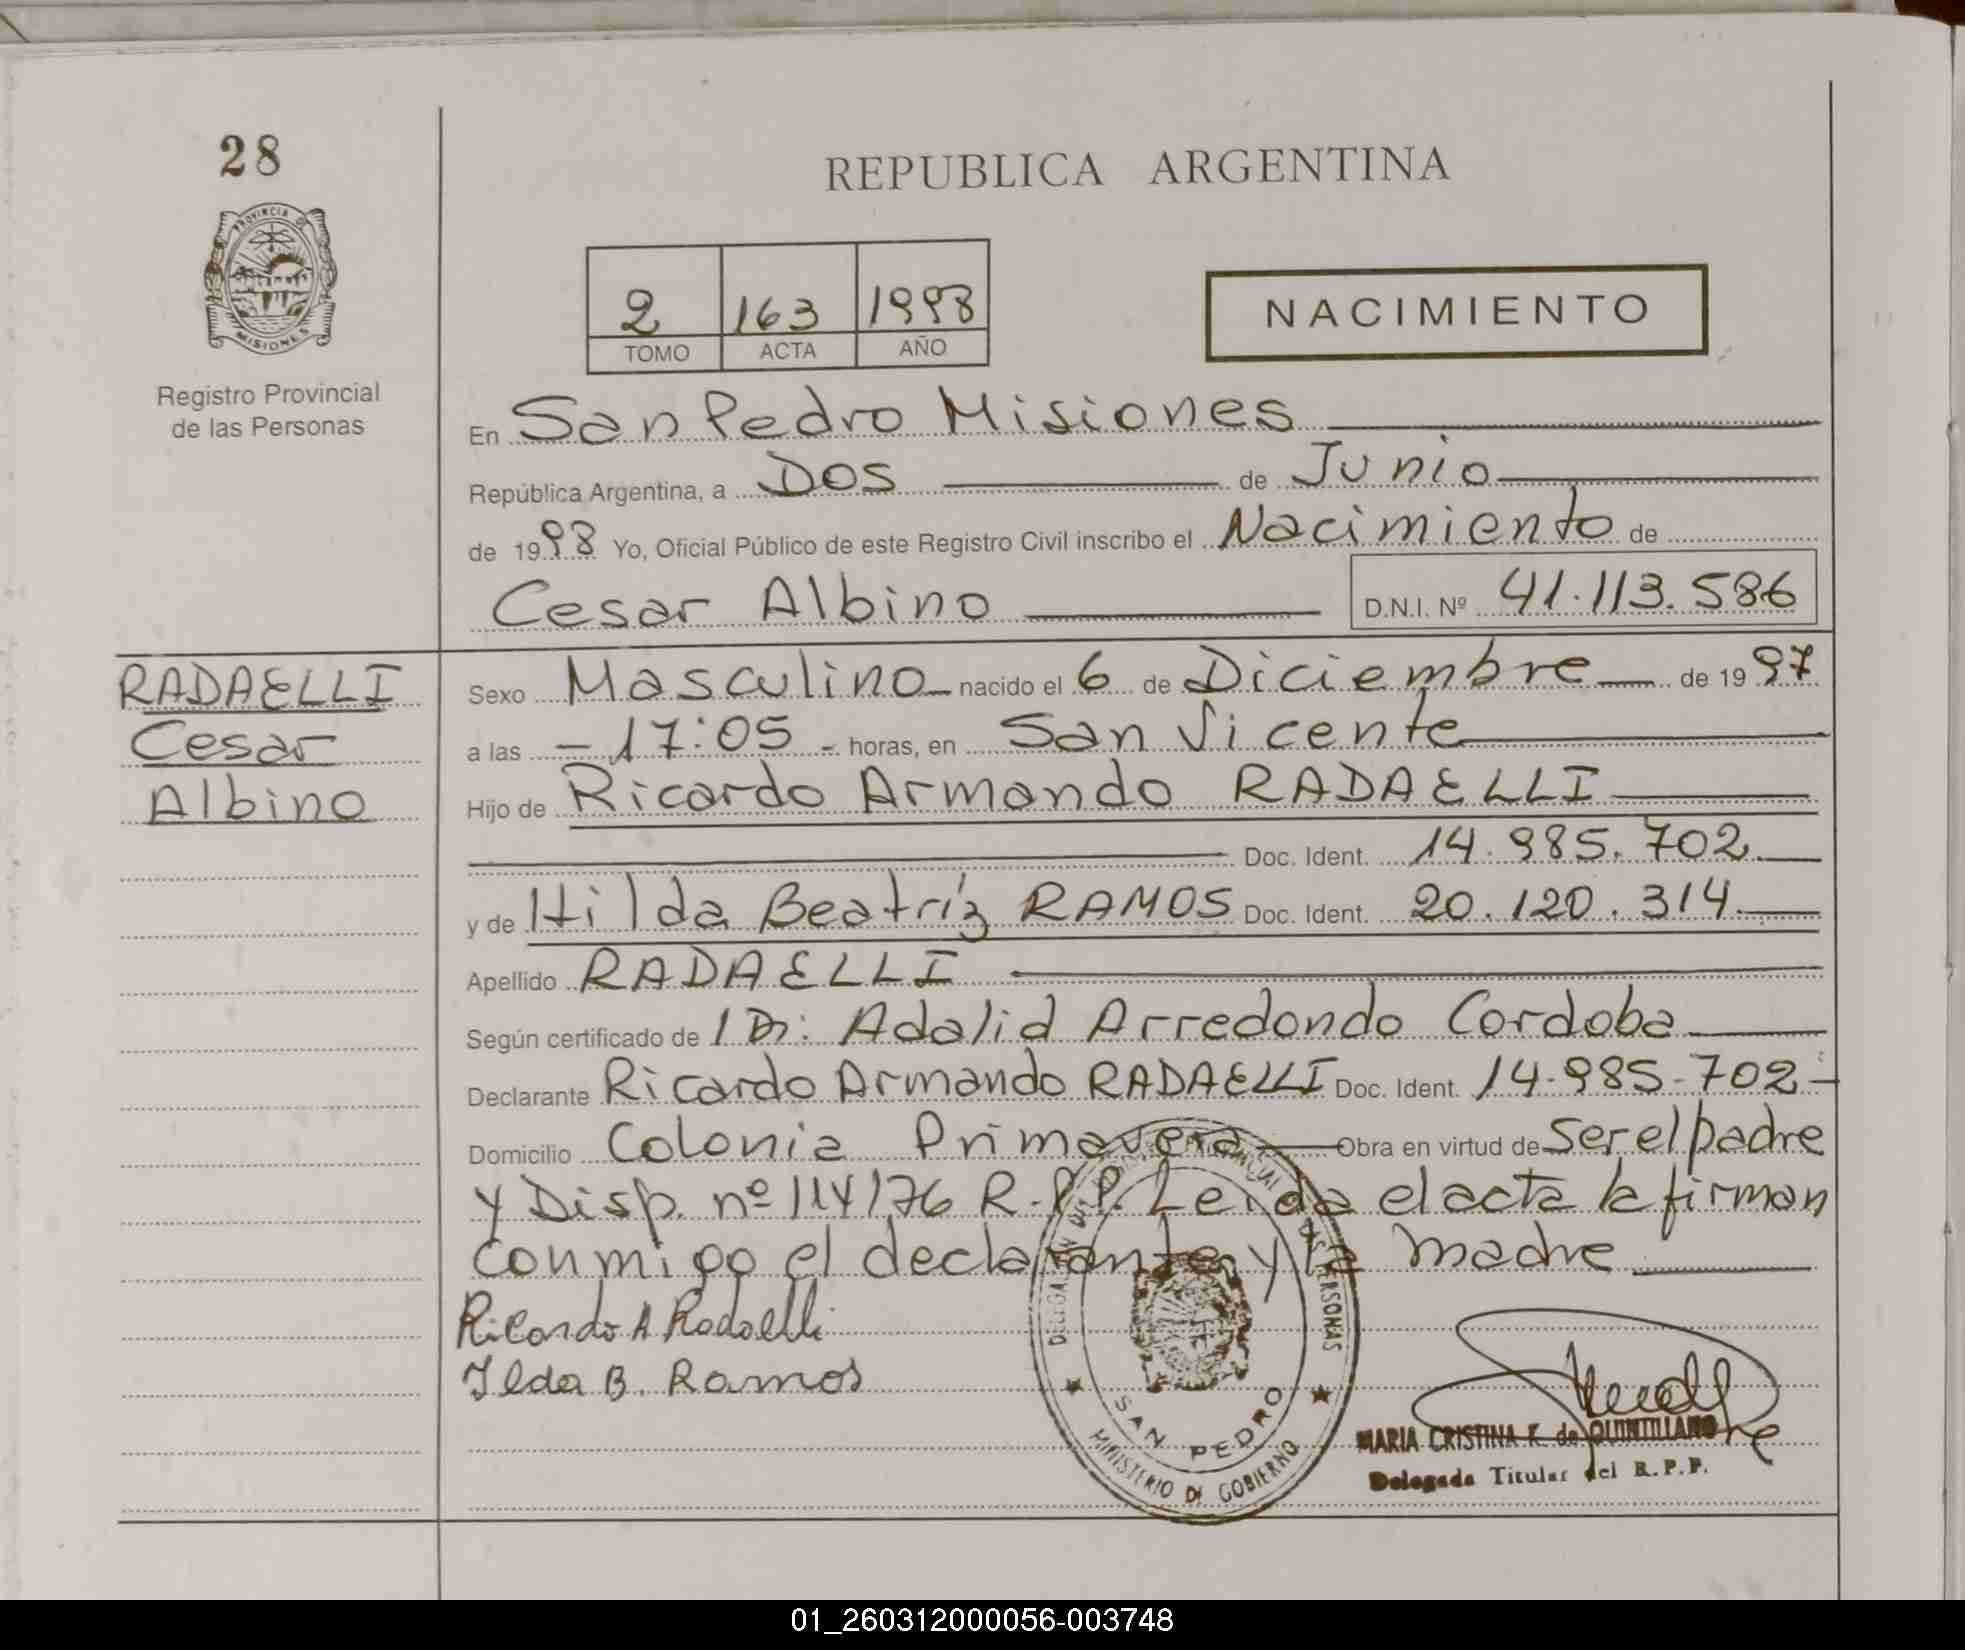 28
REPUBLICA ARGENTINA
PROVINCIA DE
MISIONES
2 163 1998
TOMO ACTA AÑO
NACIMIENTO
Registro Provincial
de las Personas
En San Pedro Misiones
República Argentina, a Dos de Junio
de 1998 Yo, Oficial Público de este Registro Civil inscribo el Nacimiento de
Cesar Albino D.N.I. Nº 41.113.586
RADAELLI
Cesar
Albino
Sexo Masculino nacido el 6 de Diciembre de 1997
a las - 17:05 - horas, en San Vicente
Hijo de Ricardo Armando RADAELLI
Doc. Ident. 14.985.702
y de Hilda Beatríz RAMOS Doc. Ident. 20.120.314
Apellido RADAELLI
Según certificado de Adalid Arredondo Cordoba
Declarante Ricardo Armando RADAELLI Doc. Ident. 14-985-702-
Domicilio Colonia Primavera Obra en virtud de Ser el padre
y Disp. nº 114/76 R.P.P. Leida el acta la firman
conmigo el declarante y la madre
Ricardo A Radaelli
Ilda B. Ramos
SAN PEDRO
MINISTERIO DE GOBIERNO
MARIA CRISTINA K. de QUINTILLANO
Delegada Titular del R.P.P.
01_260312000056-003748